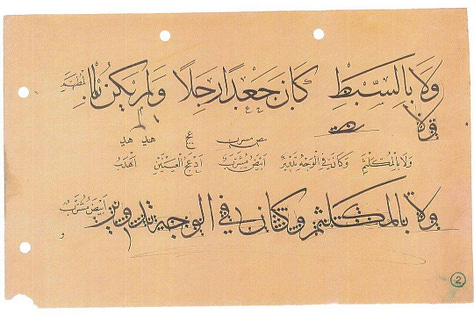 وَلَا بِالسَّبِطِ كَانَ جَعْدًا رَجِلًا وَلَمْ يَكُنْ بِالْمُطَهَّمِ
وَلَا
عج هد هد
وَلَا بِالْمُكَلْثَمِ وَكَانَ فِي الْوَجْهِ تَدْوِيرٌ اَبْيَضُ مُشْرَبٌ اَدْعَجُ الْعَيْنَيْنِ اَهْدَبُ
ولا بالمكلثم وكان في الوجه تدوير اَبْيَضُ مُشْرَبٌ
و
2